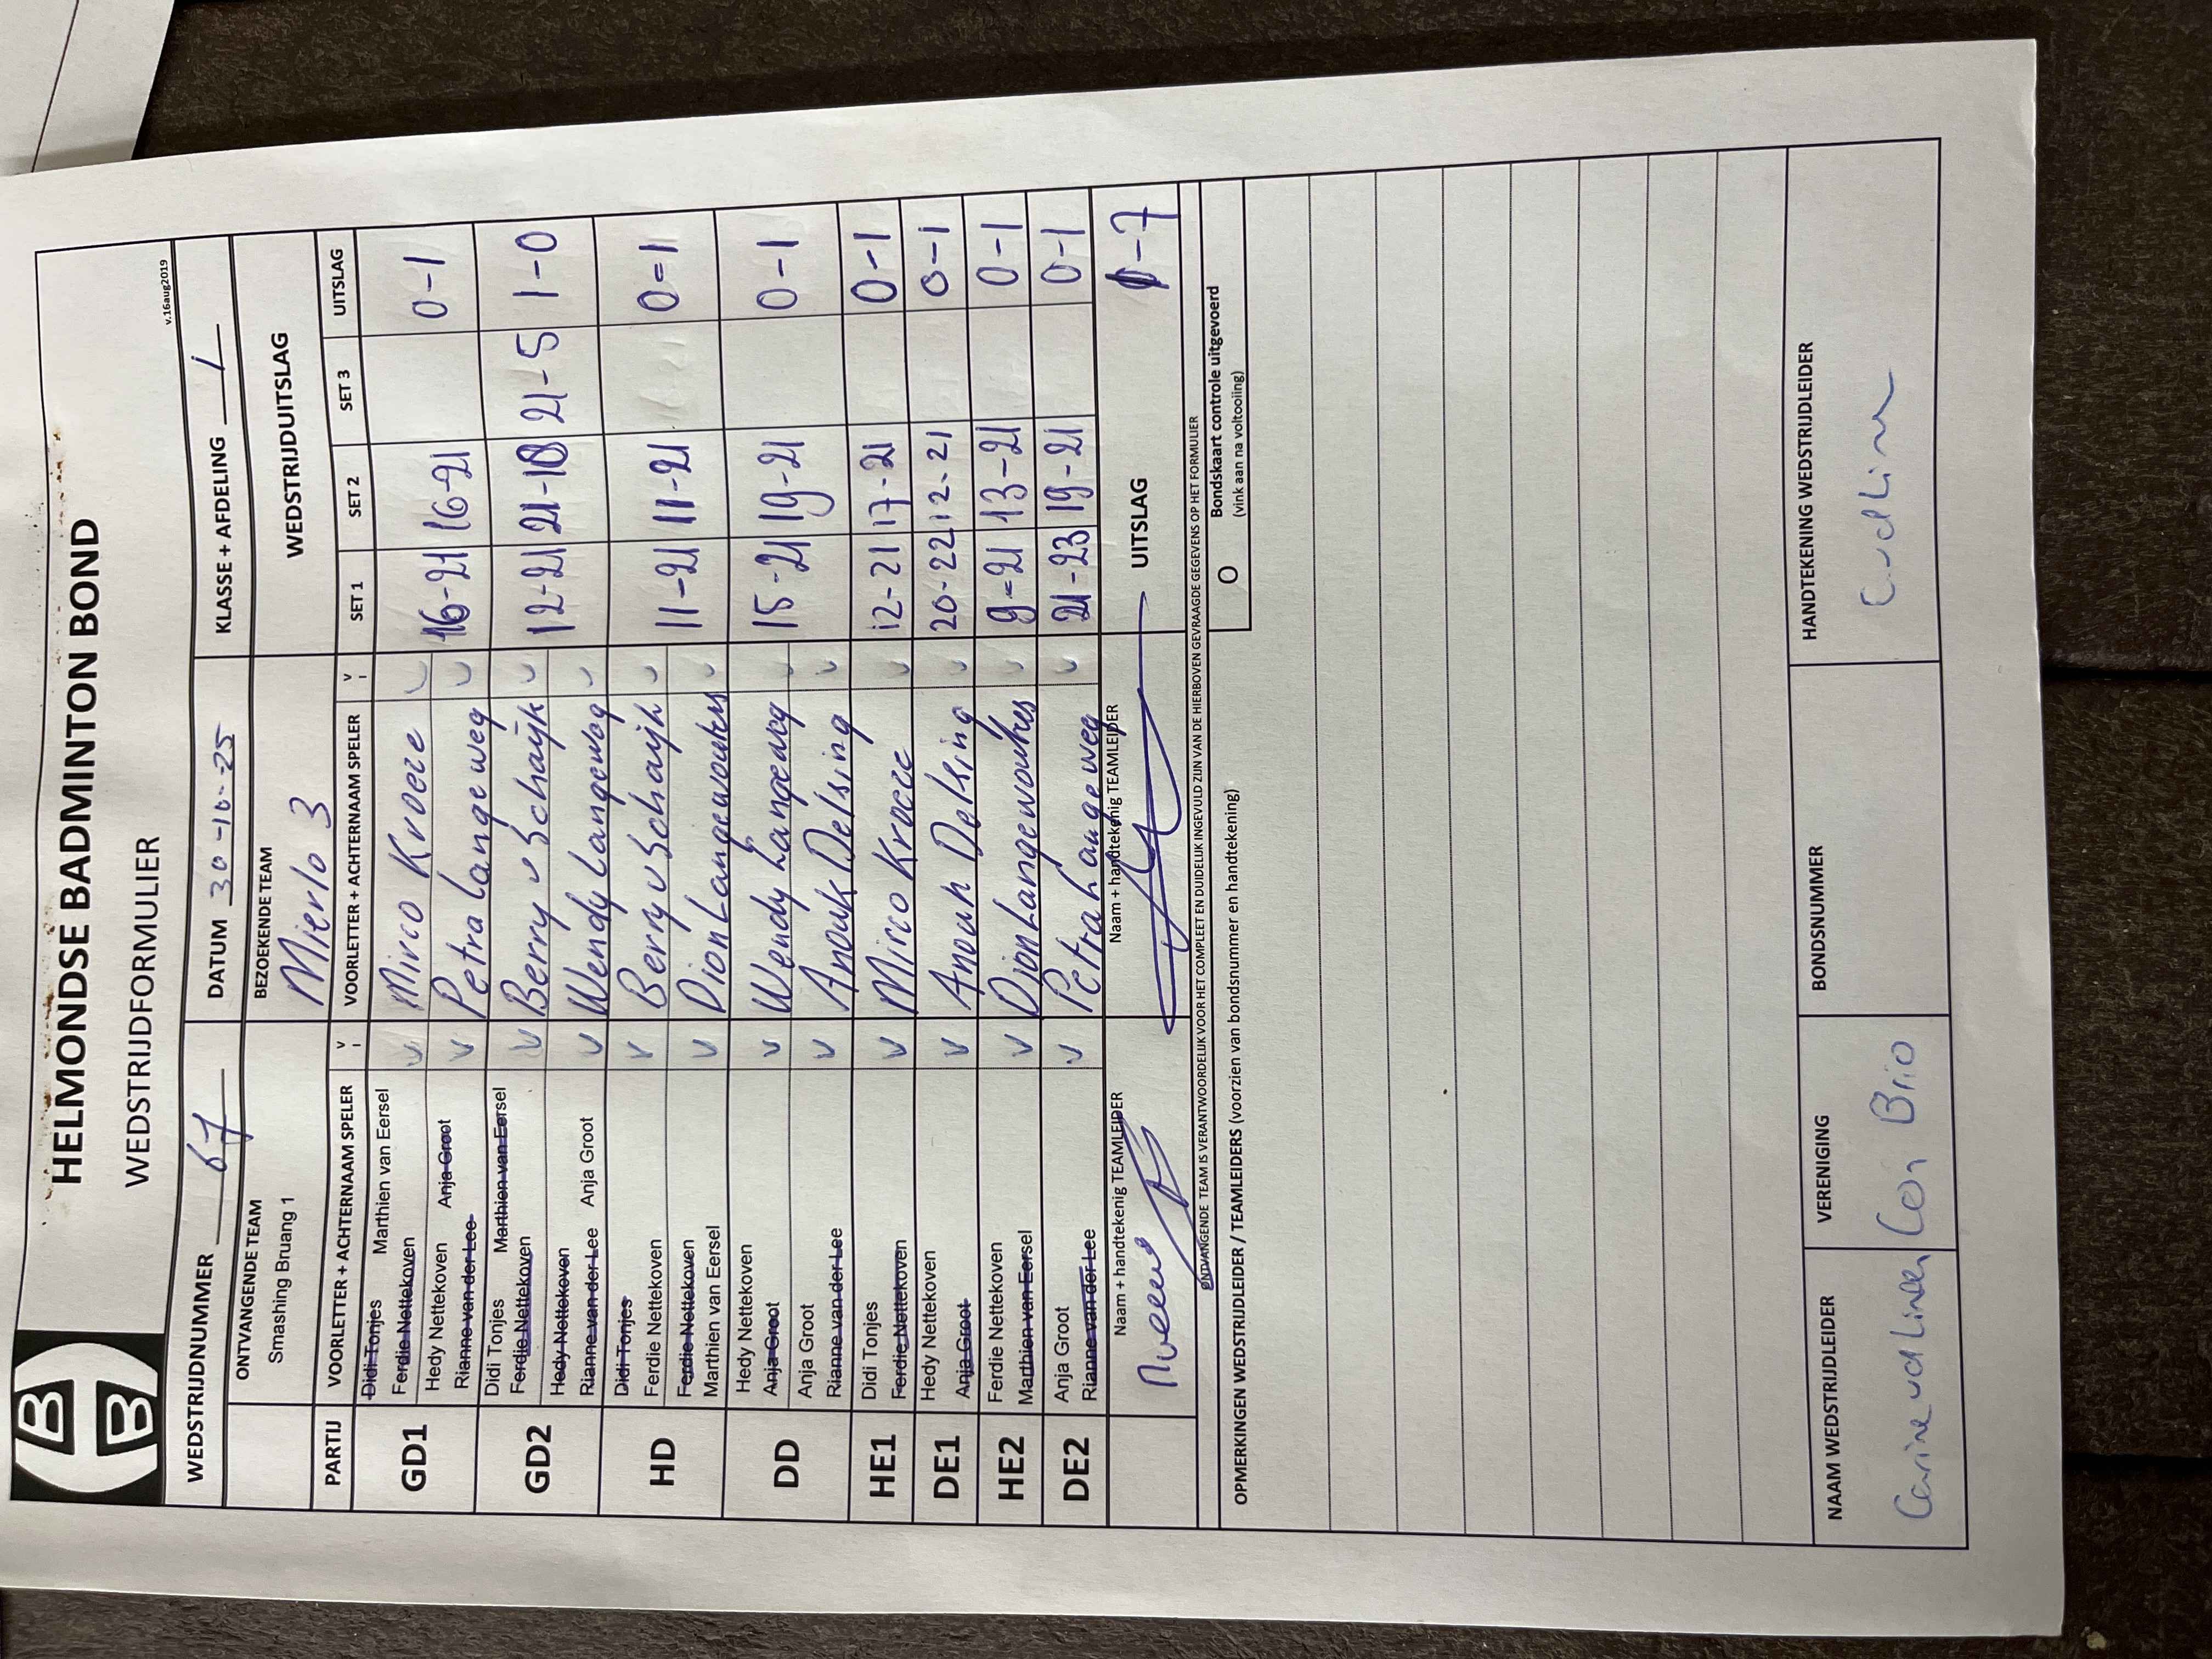 HELMONDSE BADMINTON BOND
WEDSTRIJDFORMULIER
v.16aug2019
WEDSTRIJDNUMMER 67 DATUM 30-10-25 KLASSE + AFDELING 1
ONTVANGENDE TEAM BEZOEKENDE TEAM WEDSTRIJDUITSLAG
Smashing Bruang 1 Mierlo 3
PARTIJ VOORLETTER + ACHTERNAAM SPELER V VOORLETTER + ACHTERNAAM SPELER V SET 1 SET 2 SET 3 UITSLAG
GD1 Didi Tonjes Marthien van Eersel v Mirco Kroeze v 16-21 16-21 0-1
Ferdie Nettekoven
Hedy Nettekoven Anja Groot v Petra Langeweg v
Rianne van der Lee
GD2 Didi Tonjes Marthien van Eersel v Berry v Schaijk v 12-21 21-18 21-5 1-0
Ferdie Nettekoven
Hedy Nettekoven v Wendy Langeweg v
Rianne van der Lee Anja Groot
HD Didi Tonjes v Berry v Schaijk v 11-21 11-21 0-1
Ferdie Nettekoven
Ferdie Nettekoven v Dion Langewouters v
Marthien van Eersel
DD Hedy Nettekoven v Wendy Langeweg v 15-21 19-21 0-1
Anja Groot
Anja Groot v Anouk Delsing v
Rianne van der Lee
HE1 Didi Tonjes v Mirco Kroeze v 12-21 17-21 0-1
Ferdie Nettekoven
DE1 Hedy Nettekoven v Anouk Delsing v 20-22 12-21 0-1
Anja Groot
HE2 Ferdie Nettekoven v Dion Langewouters v 9-21 13-21 0-1
Marthien van Eersel
DE2 Anja Groot v Petra Langeweg v 21-23 19-21 0-1
Rianne van der Lee
Naam + handtekenig TEAMLEIDER Naam + handtekenig TEAMLEIDER UITSLAG 1-7
ONTVANGENDE TEAM IS VERANTWOORDELIJK VOOR HET COMPLEET EN DUIDELIJK INGEVULD ZIJN VAN DE HIERBOVEN GEVRAAGDE GEGEVENS OP HET FORMULIER
OPMERKINGEN WEDSTRIJDLEIDER / TEAMLEIDERS (voorzien van bondsnummer en handtekening) O Bondskaart controle uitgevoerd
(vink aan na voltooiing)
NAAM WEDSTRIJDLEIDER VERENIGING BONDSNUMMER HANDTEKENING WEDSTRIJDLEIDER
Carine vd Linden Con Brio